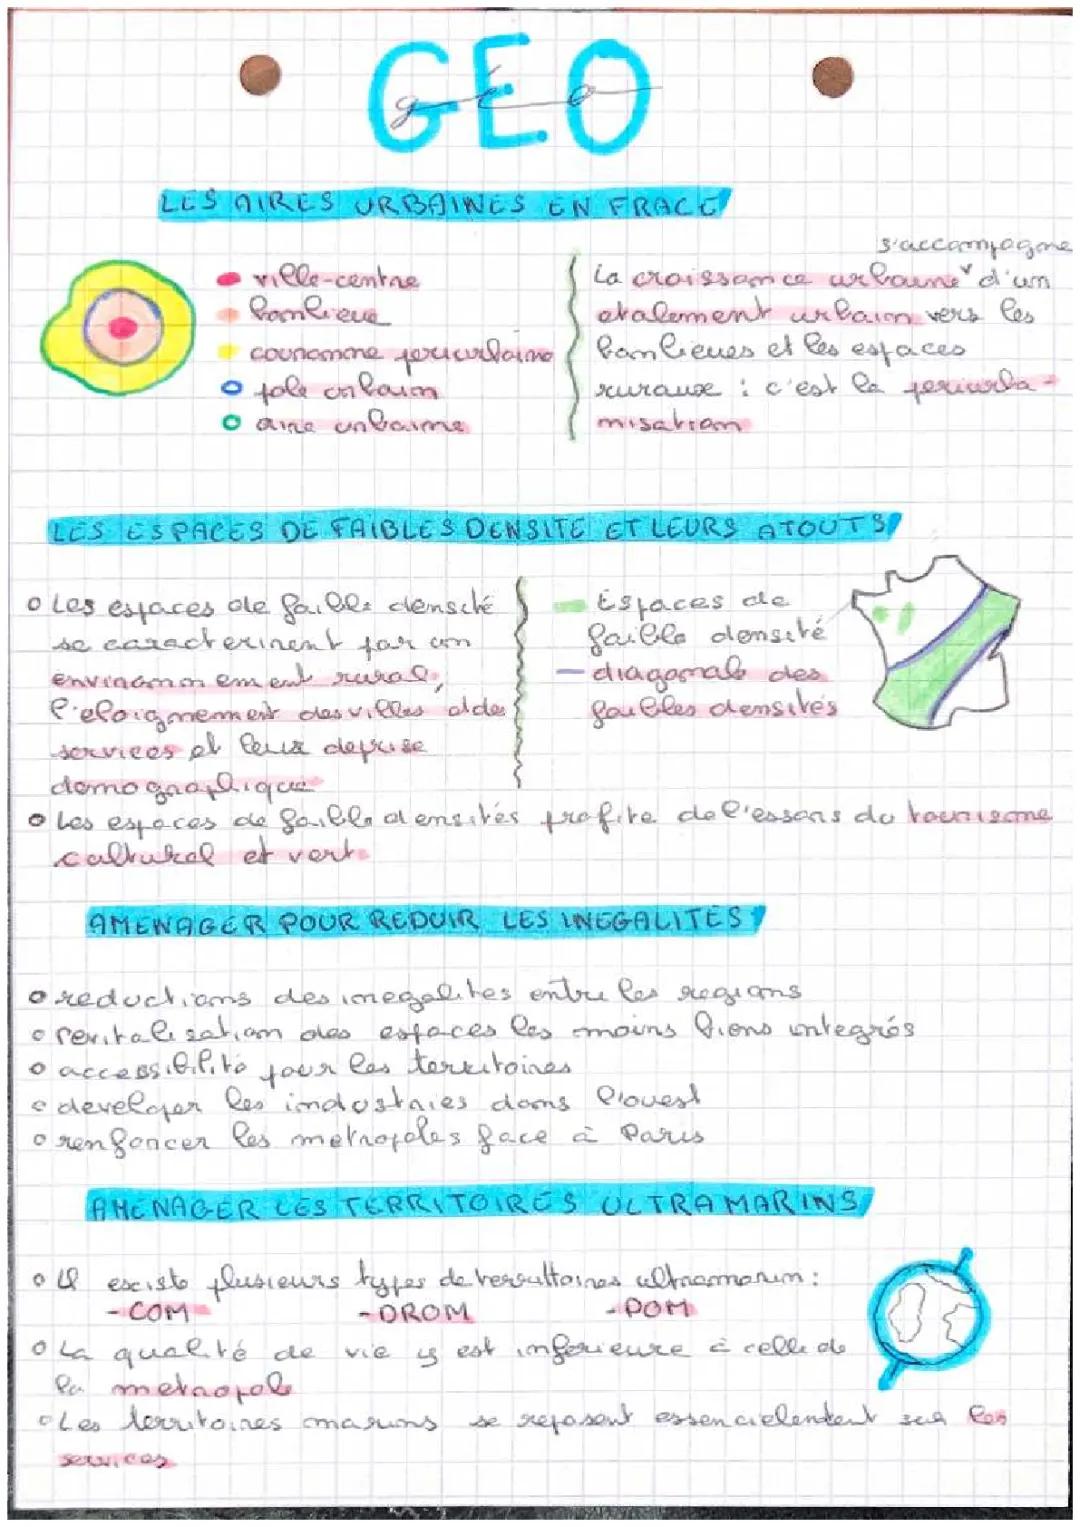 GEO
géo
LES AIRES URBAINES EN FRACE
ville-centre
banlieue
couronnne periurbaine
pole urbain
aire urbaine
s'accompagne
La croissance urbaine d'un
etalement urbain vers les
banlieues et les espaces
ruraux : c'est la periurba-
nisation
LES ESPACES DE FAIBLES DENSITE ET LEURS ATOUTS
Les espaces de faible densité
se caracterisent par un
environnement rural,
l'eloignement des villes et des
services et leur deprise
demographique
Espaces de
faible densité
diagonale des
faibles densités
Les espaces de faible densités profite de l'essors du tourisme
culturel et vert
AMENAGER POUR REDUIR LES INEGALITES
reductions des inegalites entre les regions
revitalisation des espaces les moins biens integrés
accessibilité pour les territoires
developer les industries dans l'ouest
renforcer les metropoles face à Paris
AMENAGER LES TERRITOIRES ULTRAMARINS
Il existe plusieurs types de territoires ultramarin :
-COM -DROM -POM
La qualité de vie y est inferieure à celle de
la metropole
Les territoires marins se reposent essencielendent sur les
services